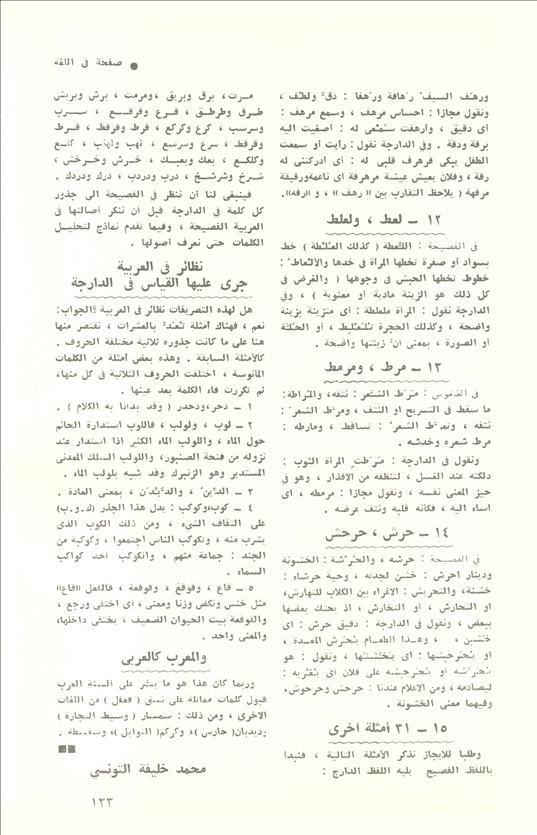 صفحة في اللغة
ورهف السيف رهافة ورهفا : دق ولطف ،
ونقول مجازا : احساس مرهف ، وسمع مرهف :
اى دقيق ، وارهفت سمعى له : اصغيت اليه
برقة ودقة . وفى الدارجة نقول : رايت أو سمعت
الطفل يبكى فرهرف قلبى له : اى ادركتنى له
رقة ، وفلان يعيش عيشة مرهرفة اى ناعمة ورقيقة
مرفهة ( يلاحظ التقارب بين « رهف » ، و «رفه»).
١٢ ـ لعط ، ولعلط
فى الفصيحة : اللعطة ( كذلك العلطة ) خط
بسواد أو صفرة تخطها المرأة فى خدها والألعاط :
خطوط تخطها الحبش فى وجوهها ( والغرض فى
كل ذلك هو الزينة مادية أو معنوية ) ، وفى
الدارجة نقول : المرأة ملعلطة : اى متزينة بزينة
واضحة ، وكذلك الحجرة تلعلط ، أو الحلة
أو الصورة ، بمعنى ان زينتها واضحة .
١٣ ـ مرط ، ومرمط
فى القاموس : مرط الشعر : نتفه ، والمراطة :
ما سقط فى التسريح أو النتف ، ومرط الشعر :
نتفه ، وتمرط الشعر : تساقط ، ومارطه :
مرط شعره وخدشه .
ونقول فى الدارجة : مرطت المرأة الثوب :
دلكته عند الغسل ، لتنظفه من الاقذار ، وهو فى
حيز المعنى نفسه ، ونقول مجازا : مرمطه ، اى
اساء اليه ، فكأنه قلبه ونتف عرضه .
١٤ ـ حرش ، حرحش
فى الفصيحة : حرشه ، والحرشة : الخشونة
ودينار احرش : خشن لجدته ، وحية حرشاء :
خشنة ، والتحريش : الاغراء بين الكلاب للتهارش ،
او التحارش ، أو التخارش ، اذ يحتك بعضها
ببعض ، ونقول فى الدارجة : دقيق حرش : اى
خشين ، وهذا الطعام يحرش المعدة ،
او يحرحشها : اى يخشنها ، ونقول : هو
يحرشه او يحرحشه على فلان اى يغريه :
ليصادمه ، ومن الاعلام عندنا : حرحش وحرحوش ،
وفيهما معنى الخشونة .
١٥ ـ ٣١ أمثلة أخرى
وطلبا للايجاز نذكر الأمثلة التالية ، فنبدأ
باللفظ الفصيح يليه اللفظ الدارج :
مرت ، برق وبربق ، ومرمت ، برش وبربش
طرق وطرطق ، قرع وقرقع ، سرب
وسرسب ، كرع وكركع ، فرط وفرفط ، قرط
وقرقط ، سرع وسرسع ، نهب ، كلع
وكلكع ، بعك وبعبك ، خرش وخرخش ،
شرخ وشرشخ ، درب ودردب ، درك ودردك .
فينبغى لنا أن ننظر فى الفصيحة الى جذور
كل كلمة فى الدارجة قبل أن ننكر أصالتها فى
العربية الفصيحة ، وفيما تقدم نماذج لتحليل
الكلمات حتى نعرف أصولها .
نظائر فى العربية
جرى عليها القياس فى الدارجة
هل لهذه التصريفات نظائر فى العربية ؟ الجواب :
نعم ، فهناك أمثلة تعد بالعشرات ، نقتصر منها
هنا على ما كانت جذوره ثلاثية مختلفة الحروف .
كالأمثلة السابقة . وهذه بعض أمثلة من الكلمات
المأنوسة ، اختلفت الحروف الثلاثية فى كل منها ،
ثم تكررت فاء الكلمة بعد عينها .
١ ـ دحر ، ودحدر ( وقد بدأنا به الكلام ) .
٢ ـ لوب ، ولولب ، فاللوب استدارة الحائم
حول الماء ، واللولب الماء الكثير اذا استدار عند
نزوله من فتحة الصنبور ، واللولب السلك المعدنى
المستدير وهو الزنبرك وقد شبه بلولب الماء .
٣ ـ الدين ، والديدن ، بمعنى العادة .
٤ ـ كوب ، وكوكب : يدل هذا الجذر (ك.و.ب)
على التفاف الشىء ، ومن ذلك الكوب الذى
يشرب منه ، وتكوكب الناس اجتمعوا ، وكوكبة من
الجند : جماعة منهم ، والكوكب أحد كواكب
السماء .
٥ ـ قاع ، وقوقع ، وقوقعة ، فالفعل «قاع»
مثل خنس ونكص وزنا ومعنى ، اى اختفى ورجع ،
والقوقعة بيت الحيوان الضعيف ، يختفى داخلها ،
والمعنى واحد .
والمعرب كالعربى
وربما كان هذا هو ما يسر على ألسنة العرب
قبول كلمات مماثلة على نسق ( فعفل ) من اللغات
الأخرى ، ومن ذلك : سمسار ( وسيط التجارة )
وديدبان( حارس )، وكركم( التوابل )، وسفسطة .
محمد خليفة التونسي
١٣٣